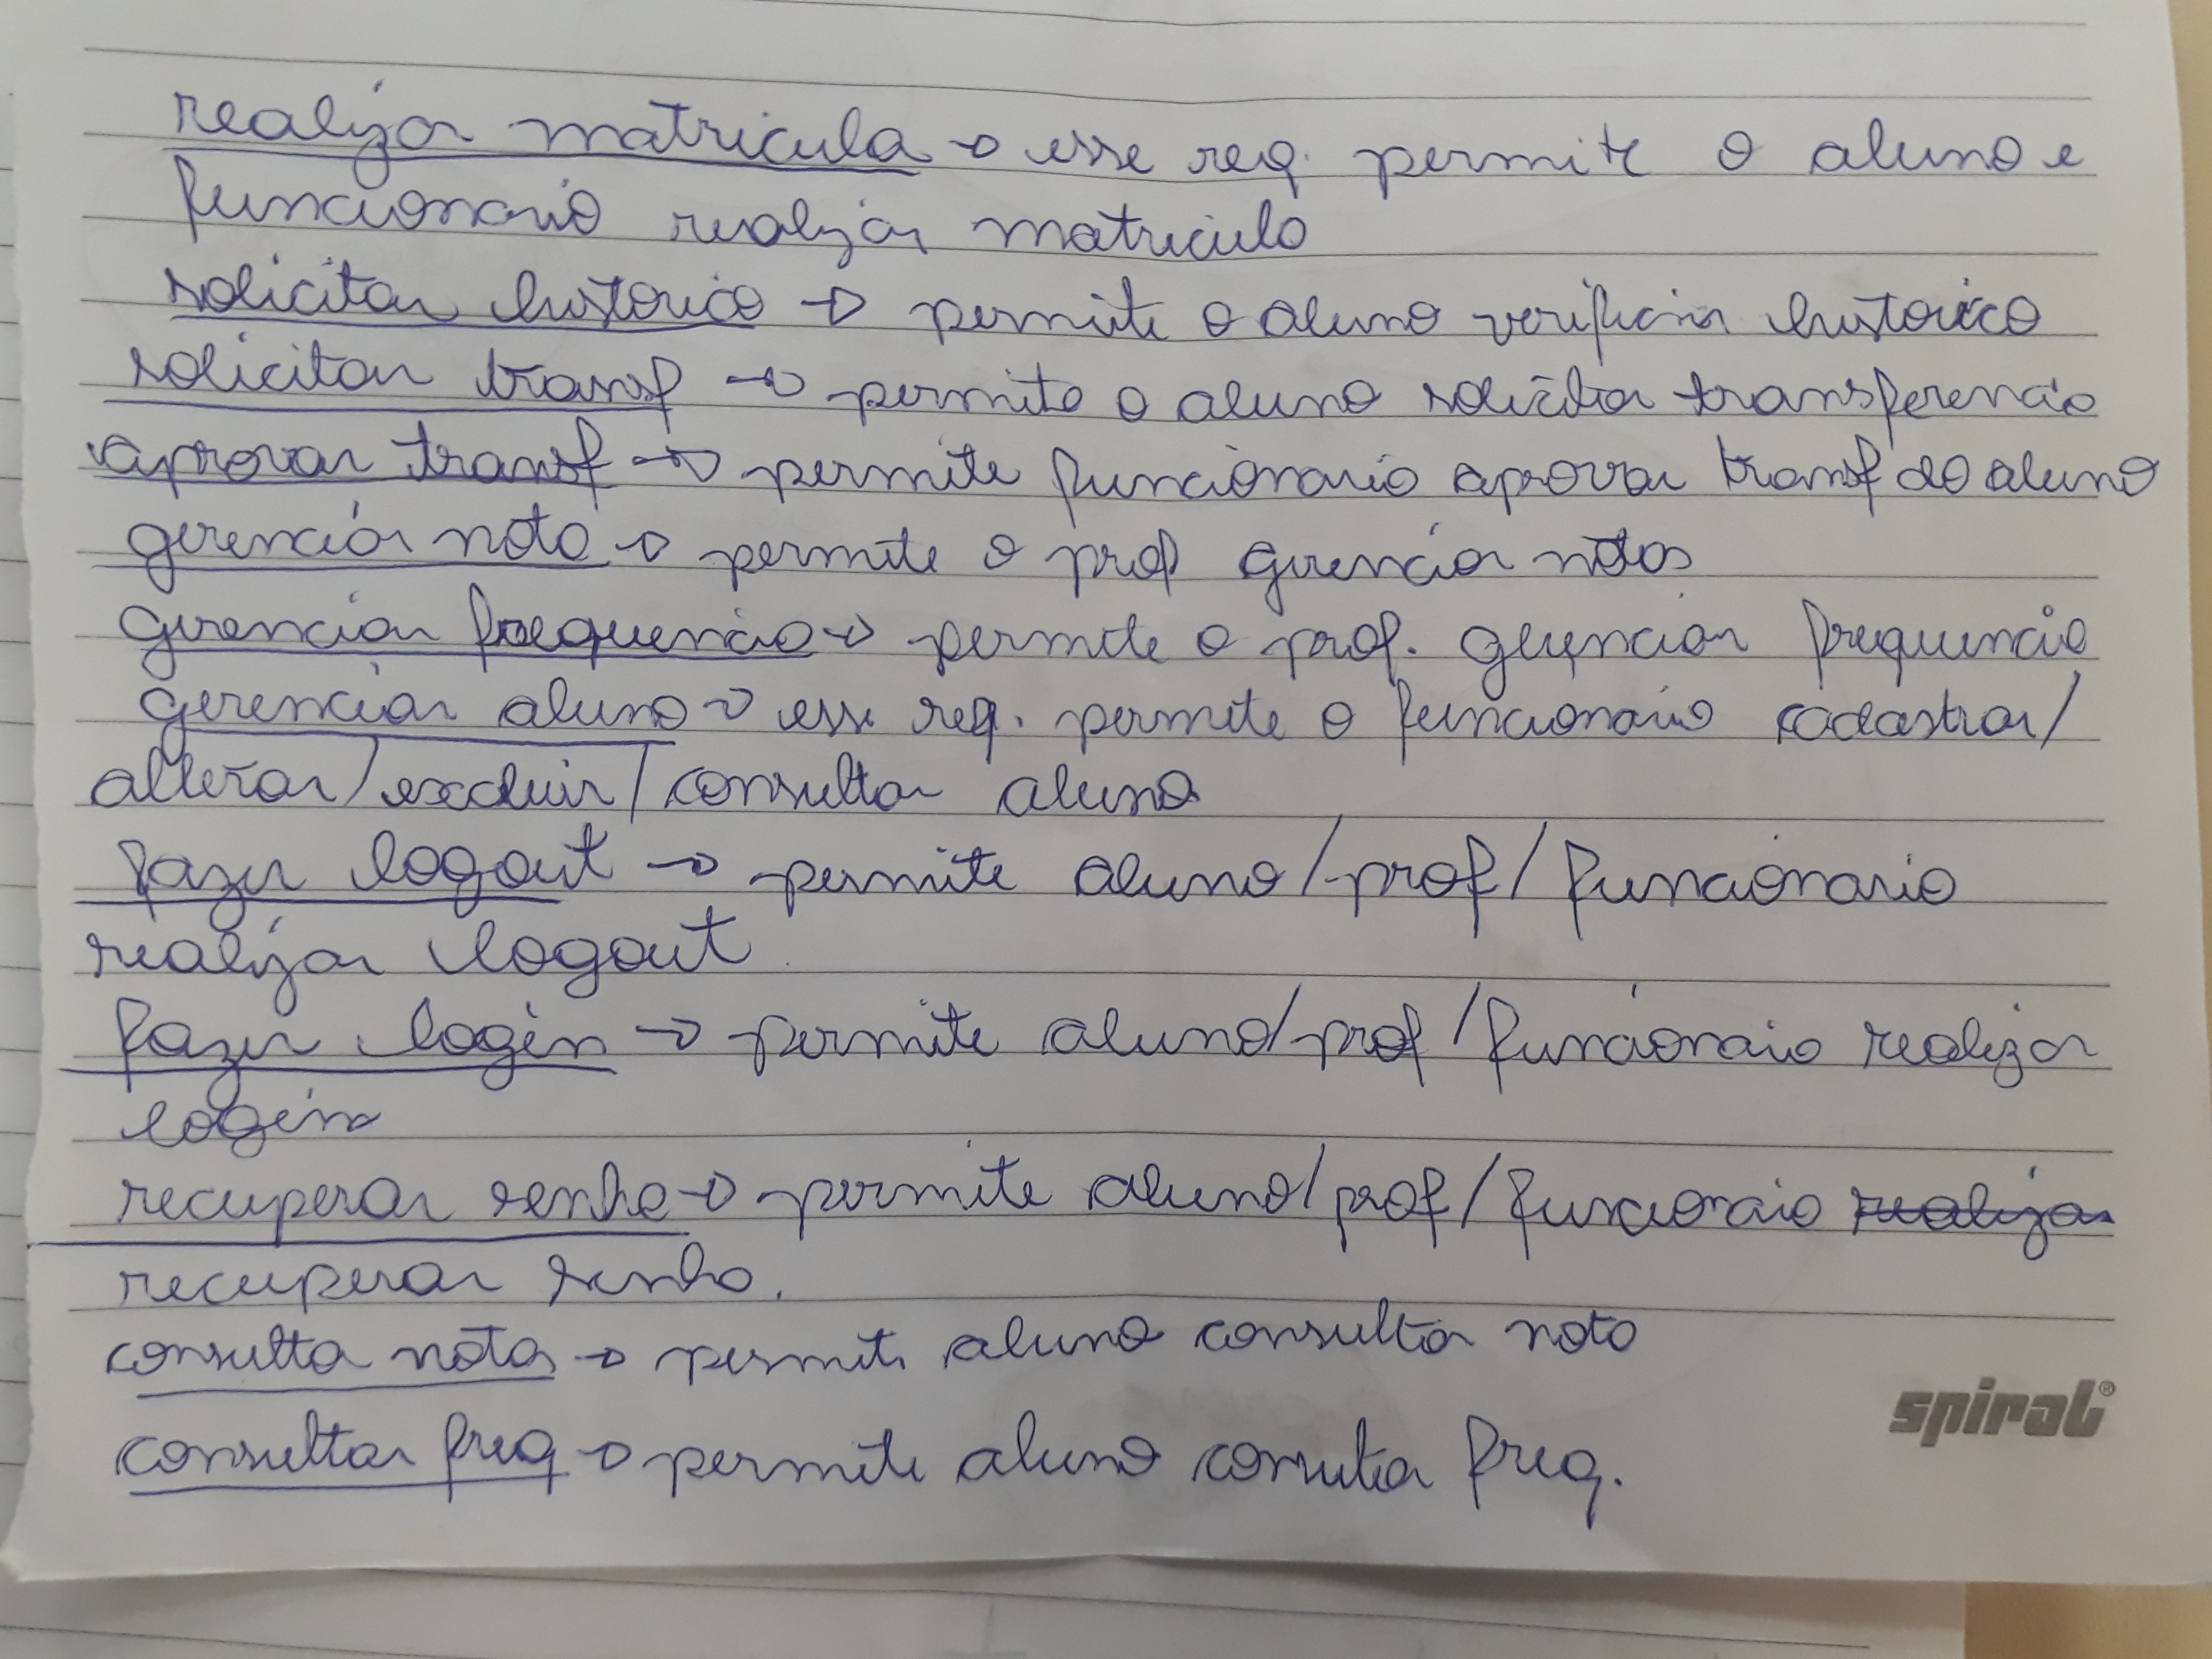 realizar matricula → esse req. permite o aluno e
funcionario realizar matricula
solicitar historico → permite o aluno verificar historico
solicitar transf → permite o aluno solicitar transferencia
aprovar transf → permite funcionario aprovar transf do aluno
gerenciar nota → permite o prof gerenciar notas
gerenciar frequencia → permite o prof. gerenciar frequencia
gerenciar aluno → esse req. permite o funcionario cadastrar/
alterar/excluir/consultar aluno
fazer logout → permite aluno/prof/funcionario
realizar logout
fazer login → permite aluno/prof/funcionario realizar
login
recuperar senha → permite aluno/prof/funcionario realizar
recuperar senha.
consulta notas → permite aluno consultar nota
consultar freq → permite aluno consultar freq.
spiral®